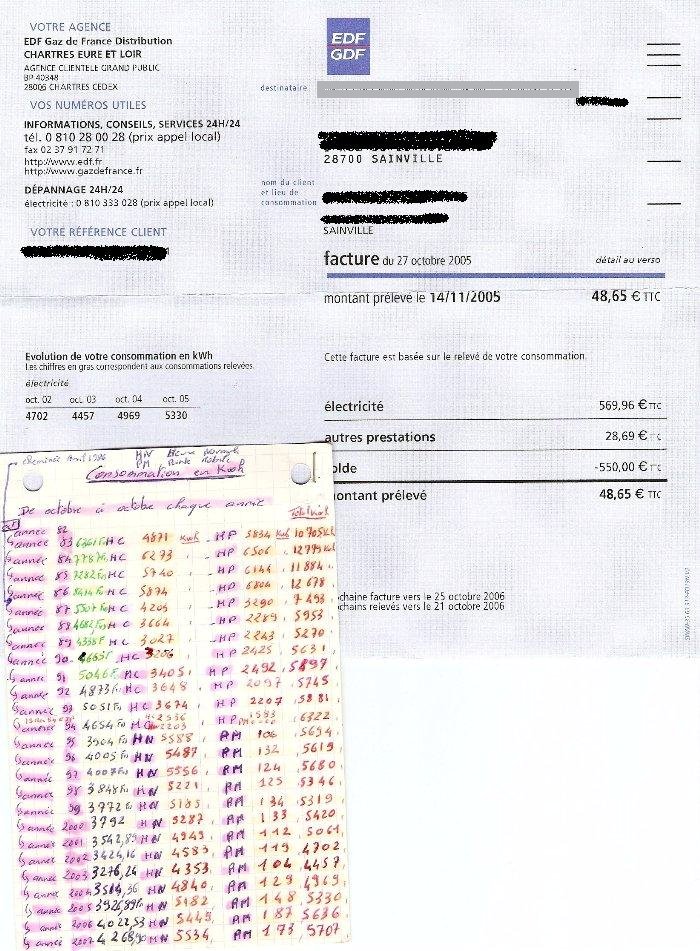 VOTRE AGENCE
EDF Gaz de France Distribution
CHARTRES EURE ET LOIR
AGENCE CLIENTELE GRAND PUBLIC
BP 40348
28006 CHARTRES CEDEX
VOS NUMÉROS UTILES
INFORMATIONS, CONSEILS, SERVICES 24H/24
tél. 0 810 28 00 28 (prix appel local)
fax 02 37 91 72 71
http://www.edf.fr
http://www.gazdefrance.fr
DÉPANNAGE 24H/24
électricité : 0 810 333 028 (prix appel local)
VOTRE RÉFÉRENCE CLIENT
EDF
GDF
destinataire
28700 SAINVILLE
nom du client
et lieu de
consommation
SAINVILLE
facture du 27 octobre 2005 détail au verso
montant prélevé le 14/11/2005 48,65 € TTC
Evolution de votre consommation en kWh
Les chiffres en gras correspondent aux consommations relevées.
électricité
oct. 02 oct. 03 oct. 04 oct. 05
4702 4457 4969 5330
Cette facture est basée sur le relevé de votre consommation.
électricité 569,96 € TTC
autres prestations 28,69 € TTC
olde -550,00 € TTC
ontant prélevé 48,65 € TTC
ochaine facture vers le 25 octobre 2006
ochains relevés vers le 21 octobre 2006
Avril 1986 HN Heure Normale
PM Pointe Mobile
Consommation en Kwh
De octobre à octobre chaque année
Total Kwh
année 82
année 83 HC 4871 Kwh HP 5834 Kwh 10705
année 84 HC 6273 HP 6506 12779
année 85 7282 F HC 5740 HP 6144 11884
année 86 HC 5874 HP 6804 12678
année 87 5507 F HC 4203 HP 3290 7493
année 88 4682 F HC 3664 HP 2289 5953
année 89 4338 F HC 3027 HP 2243 5270
année 90 4663 F HC 3206 HP 2425 5631
année 91 5046 F HC 3405 HP 2492 5897
année 92 4873 F HC 3648 HP 2097 5745
année 93 5051 F HC 3674 HP 2207 5881
année 94 4654 F HC 2536 HP 1593 6322
année 95 3904 F HN 5588 PM 106 5694
année 96 4005 F HN 5487 PM 132 5619
année 97 4007 F HN 5556 PM 124 5680
année 98 3848 F HN 5221 PM 125 5346
année 99 3772 F HN 5185 PM 134 5319
année 2000 3792 HN 5287 PM 133 5420
année 2001 3542,89 HN 4949 PM 112 5061
année 2002 3424,16 HN 4583 PM 119 4702
année 2003 3276,24 HN 4353 PM 104 4457
année 2004 3514,36 HN 4840 PM 129 4969
année 2005 3926,89 HN 5182 PM 148 5330
année 2006 4022,53 HN 5449 PM 187 5636
année 2007 4268,90 HN 5534 PM 173 5707